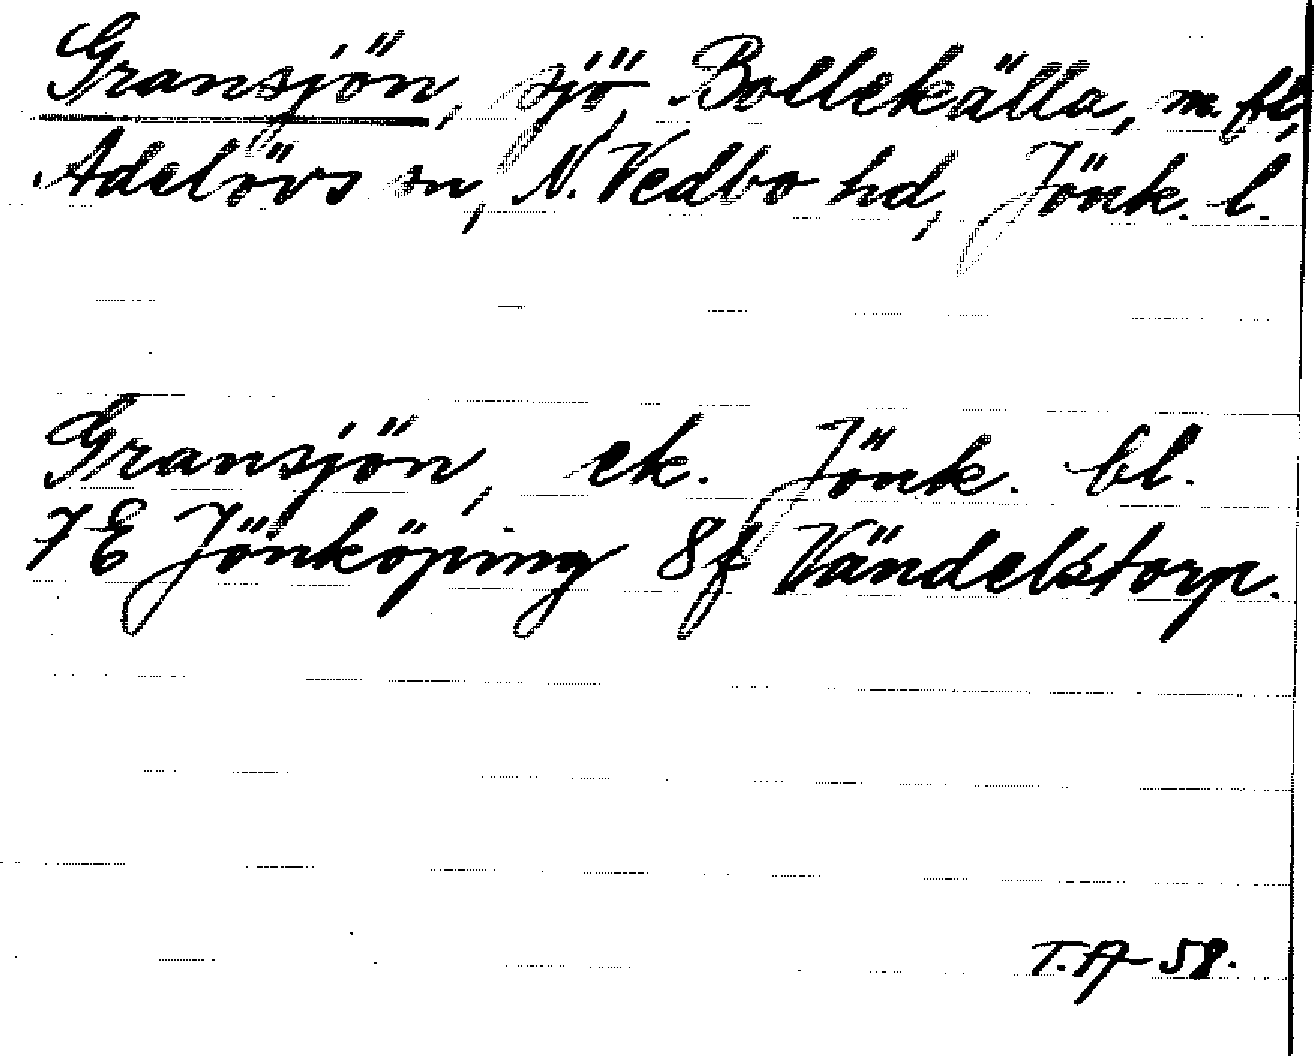 Gransjön, sjö Bollekälla, m. fl,
Adelövs sn, N. Vedbo hd, Jönk. l.
Gransjön, ek. Jönk. bl.
7E Jönköping 8f Vändelstorp.
T.A-58.